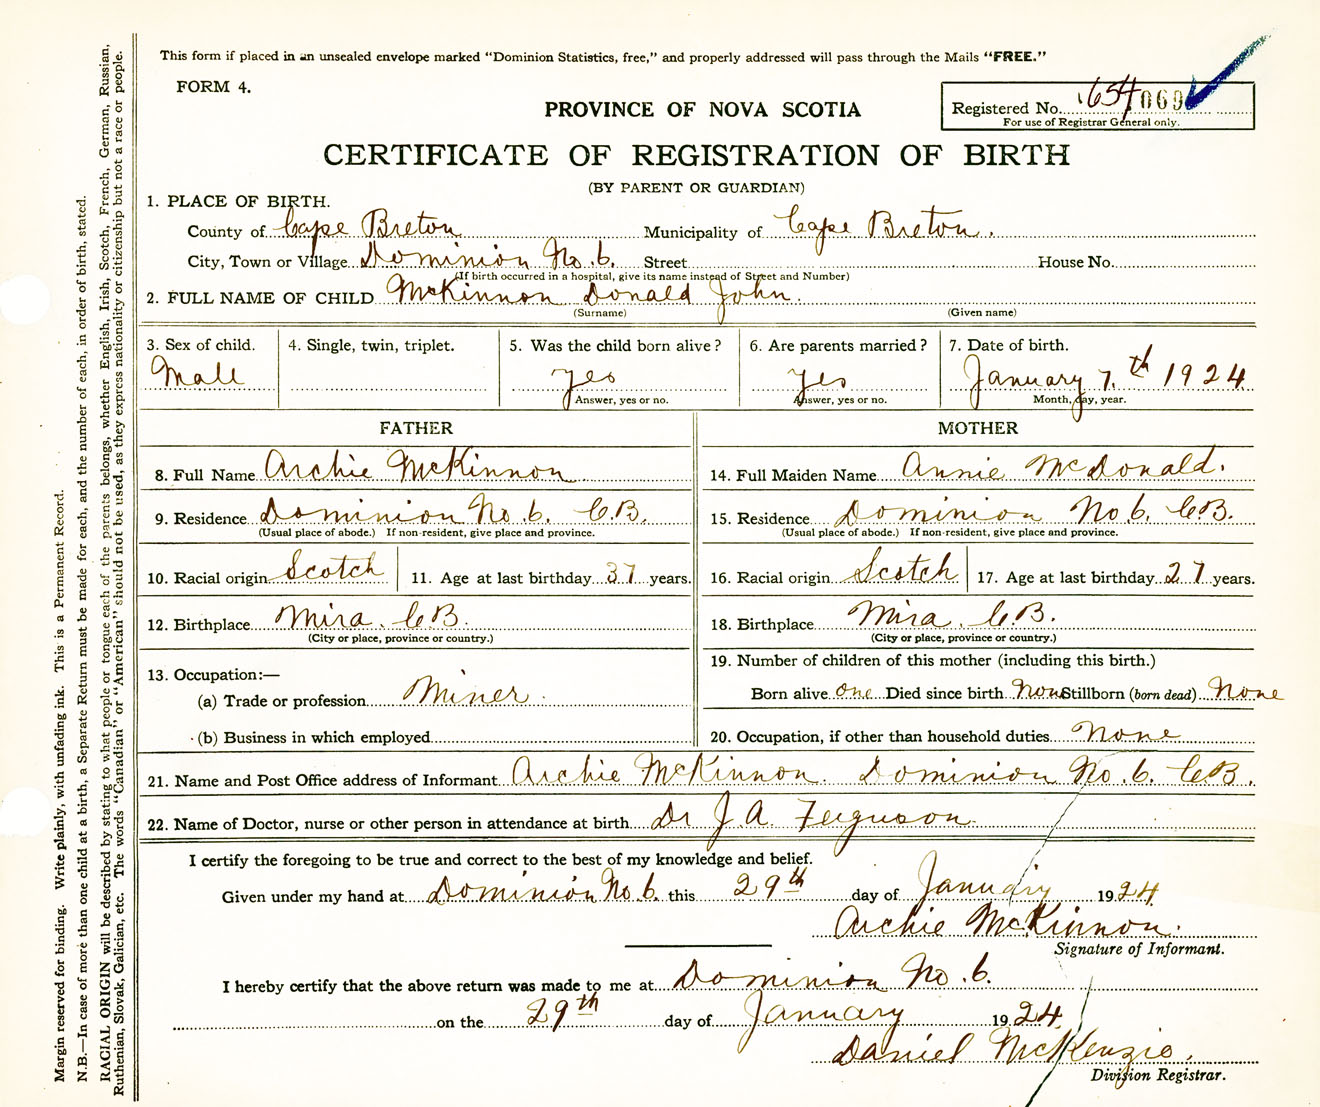 This form if placed in an unsealed envelope marked “Dominion Statistics, free,” and properly addressed will pass through the Mails “FREE.”
FORM 4.
PROVINCE OF NOVA SCOTIA
Registered No. 654 069
For use of Registrar General only.
CERTIFICATE OF REGISTRATION OF BIRTH
(BY PARENT OR GUARDIAN)
1. PLACE OF BIRTH.
County of Cape Breton Municipality of Cape Breton.
City, Town or Village Dominion No. 6. Street House No.
(If birth occurred in a hospital, give its name instead of Street and Number)
2. FULL NAME OF CHILD McKinnon Donald John.
(Surname) (Given name)
3. Sex of child. 4. Single, twin, triplet. 5. Was the child born alive? 6. Are parents married? 7. Date of birth.
Male yes yes January 7.th 1924
Answer, yes or no. Answer, yes or no. Month, day, year.
FATHER MOTHER
8. Full Name Archie McKinnon 14. Full Maiden Name Annie McDonald.
9. Residence Dominion No. 6. C.B. 15. Residence Dominion No. 6. C.B.
(Usual place of abode.) If non-resident, give place and province. (Usual place of abode.) If non-resident, give place and province.
10. Racial origin Scotch 11. Age at last birthday 37 years. 16. Racial origin Scotch 17. Age at last birthday 27 years.
12. Birthplace Mira. C.B. 18. Birthplace Mira. C.B.
(City or place, province or country.) (City or place, province or country.)
13. Occupation:— 19. Number of children of this mother (including this birth.)
(a) Trade or profession Miner. Born alive one Died since birth None Stillborn (born dead) None
(b) Business in which employed 20. Occupation, if other than household duties None
21. Name and Post Office address of Informant Archie McKinnon. Dominion No. 6. C.B.
22. Name of Doctor, nurse or other person in attendance at birth Dr J. A. Ferguson.
I certify the foregoing to be true and correct to the best of my knowledge and belief.
Given under my hand at Dominion No. 6. this 29th day of January 1924.
Archie McKinnon.
Signature of Informant.
I hereby certify that the above return was made to me at Dominion No. 6.
on the 29th day of January 1924.
Daniel McKenzie.
Division Registrar.
Margin reserved for binding. Write plainly, with unfading ink. This is a Permanent Record.
N.B.—In case of more than one child at a birth, a Separate Return must be made for each, and the number of each, in order of birth, stated.
RACIAL ORIGIN will be described by stating to what people or tongue each of the parents belongs, whether English, Irish, Scotch, French, German, Russian,
Ruthenian, Slovak, Galician, etc. The words “Canadian” or “American” should not be used, as they express nationality or citizenship but not a race or people.